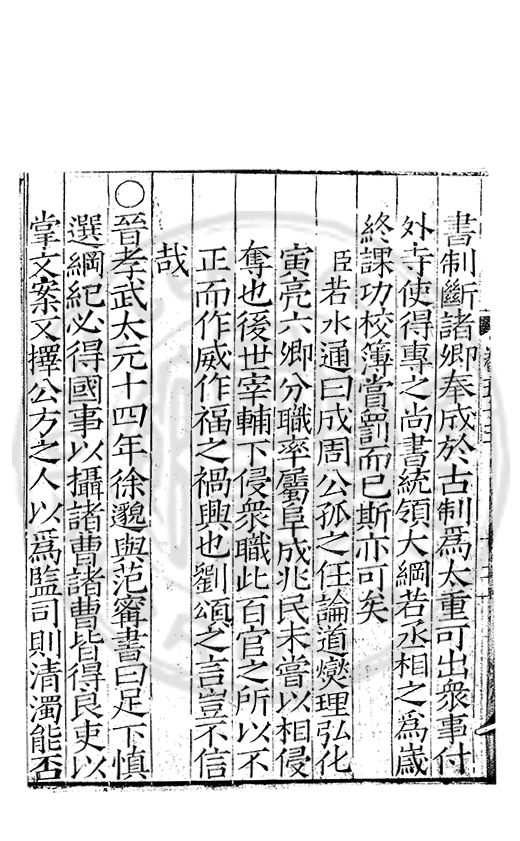 書制斷諸卿奉成於古制爲太重可出衆事付
外寺使得專之尚書統領大綱若丞相之爲歲
終課功校簿賞罰而已斯亦可矣
臣若水通曰成周公孤之任論道燮理弘化
寅亮六卿分職率屬阜成兆民未嘗以相侵
奪也後世宰輔下侵衆職此百官之所以不
正而作威作福之禍興也劉頌之言豈不信
哉
○晉孝武太元十四年徐邈與范甯書曰足下慎
選綱紀必得國事以攝諸曹諸曹皆得良吏以
掌文案又擇公方之人以爲監司則清濁能否